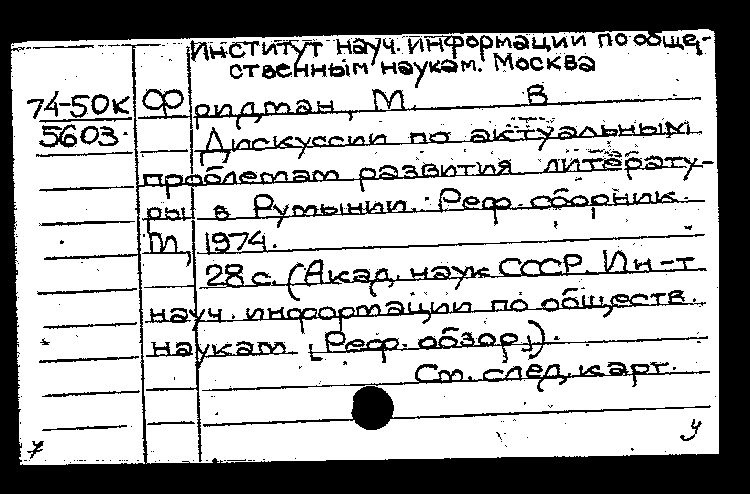 Институт науч. информации по обще-
ственным наукам. Москва
74-50к Фридман, М. В
5603 Дискуссии по актуальным
проблемам развития литерату-
ры в Румынии. Реф. сборник.
М, 1974.
28 с. (Акад. наук СССР. Ин-т
науч. информации по обществ.
наукам [Реф. обзор]).
См. след. карт.
у